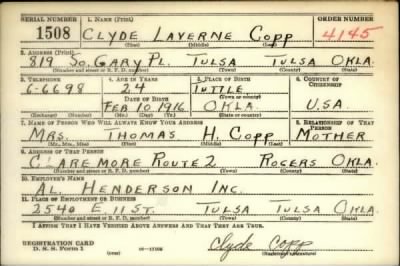 SERIAL NUMBER 1. NAME (Print) ORDER NUMBER
1508 CLYDE LAVERNE COPP 4145
(First) (Middle) (Last)
2. ADDRESS (Print)
819 SO. GARY PL. TULSA TULSA OKLA.
(Number and street or R. F. D. number) (Town) (County) (State)
3. TELEPHONE 4. AGE IN YEARS 5. PLACE OF BIRTH 6. COUNTRY OF CITIZENSHIP
6-6698 24 TUTTLE
DATE OF BIRTH (Town or county)
FEB 10 1916 OKLA. U.S.A.
(Exchange) (Number) (Mo.) (Day) (Yr.) (State or country)
7. NAME OF PERSON WHO WILL ALWAYS KNOW YOUR ADDRESS 8. RELATIONSHIP OF THAT PERSON
MRS. THOMAS H. COPP MOTHER
(Mr., Mrs., Miss) (First) (Middle) (Last)
9. ADDRESS OF THAT PERSON
CLAREMORE ROUTE 2 ROGERS OKLA.
(Number and street or R. F. D. number) (Town) (County) (State)
10. EMPLOYER'S NAME
AL. HENDERSON INC.
11. PLACE OF EMPLOYMENT OR BUSINESS
2540 E. 11 ST. TULSA TULSA OKLA.
(Number and street or R. F. D. number) (Town) (County) (State)
I AFFIRM THAT I HAVE VERIFIED ABOVE ANSWERS AND THAT THEY ARE TRUE.
REGISTRATION CARD
D. S. S. Form 1 (over) Clyde Copp
(Registrant's signature)